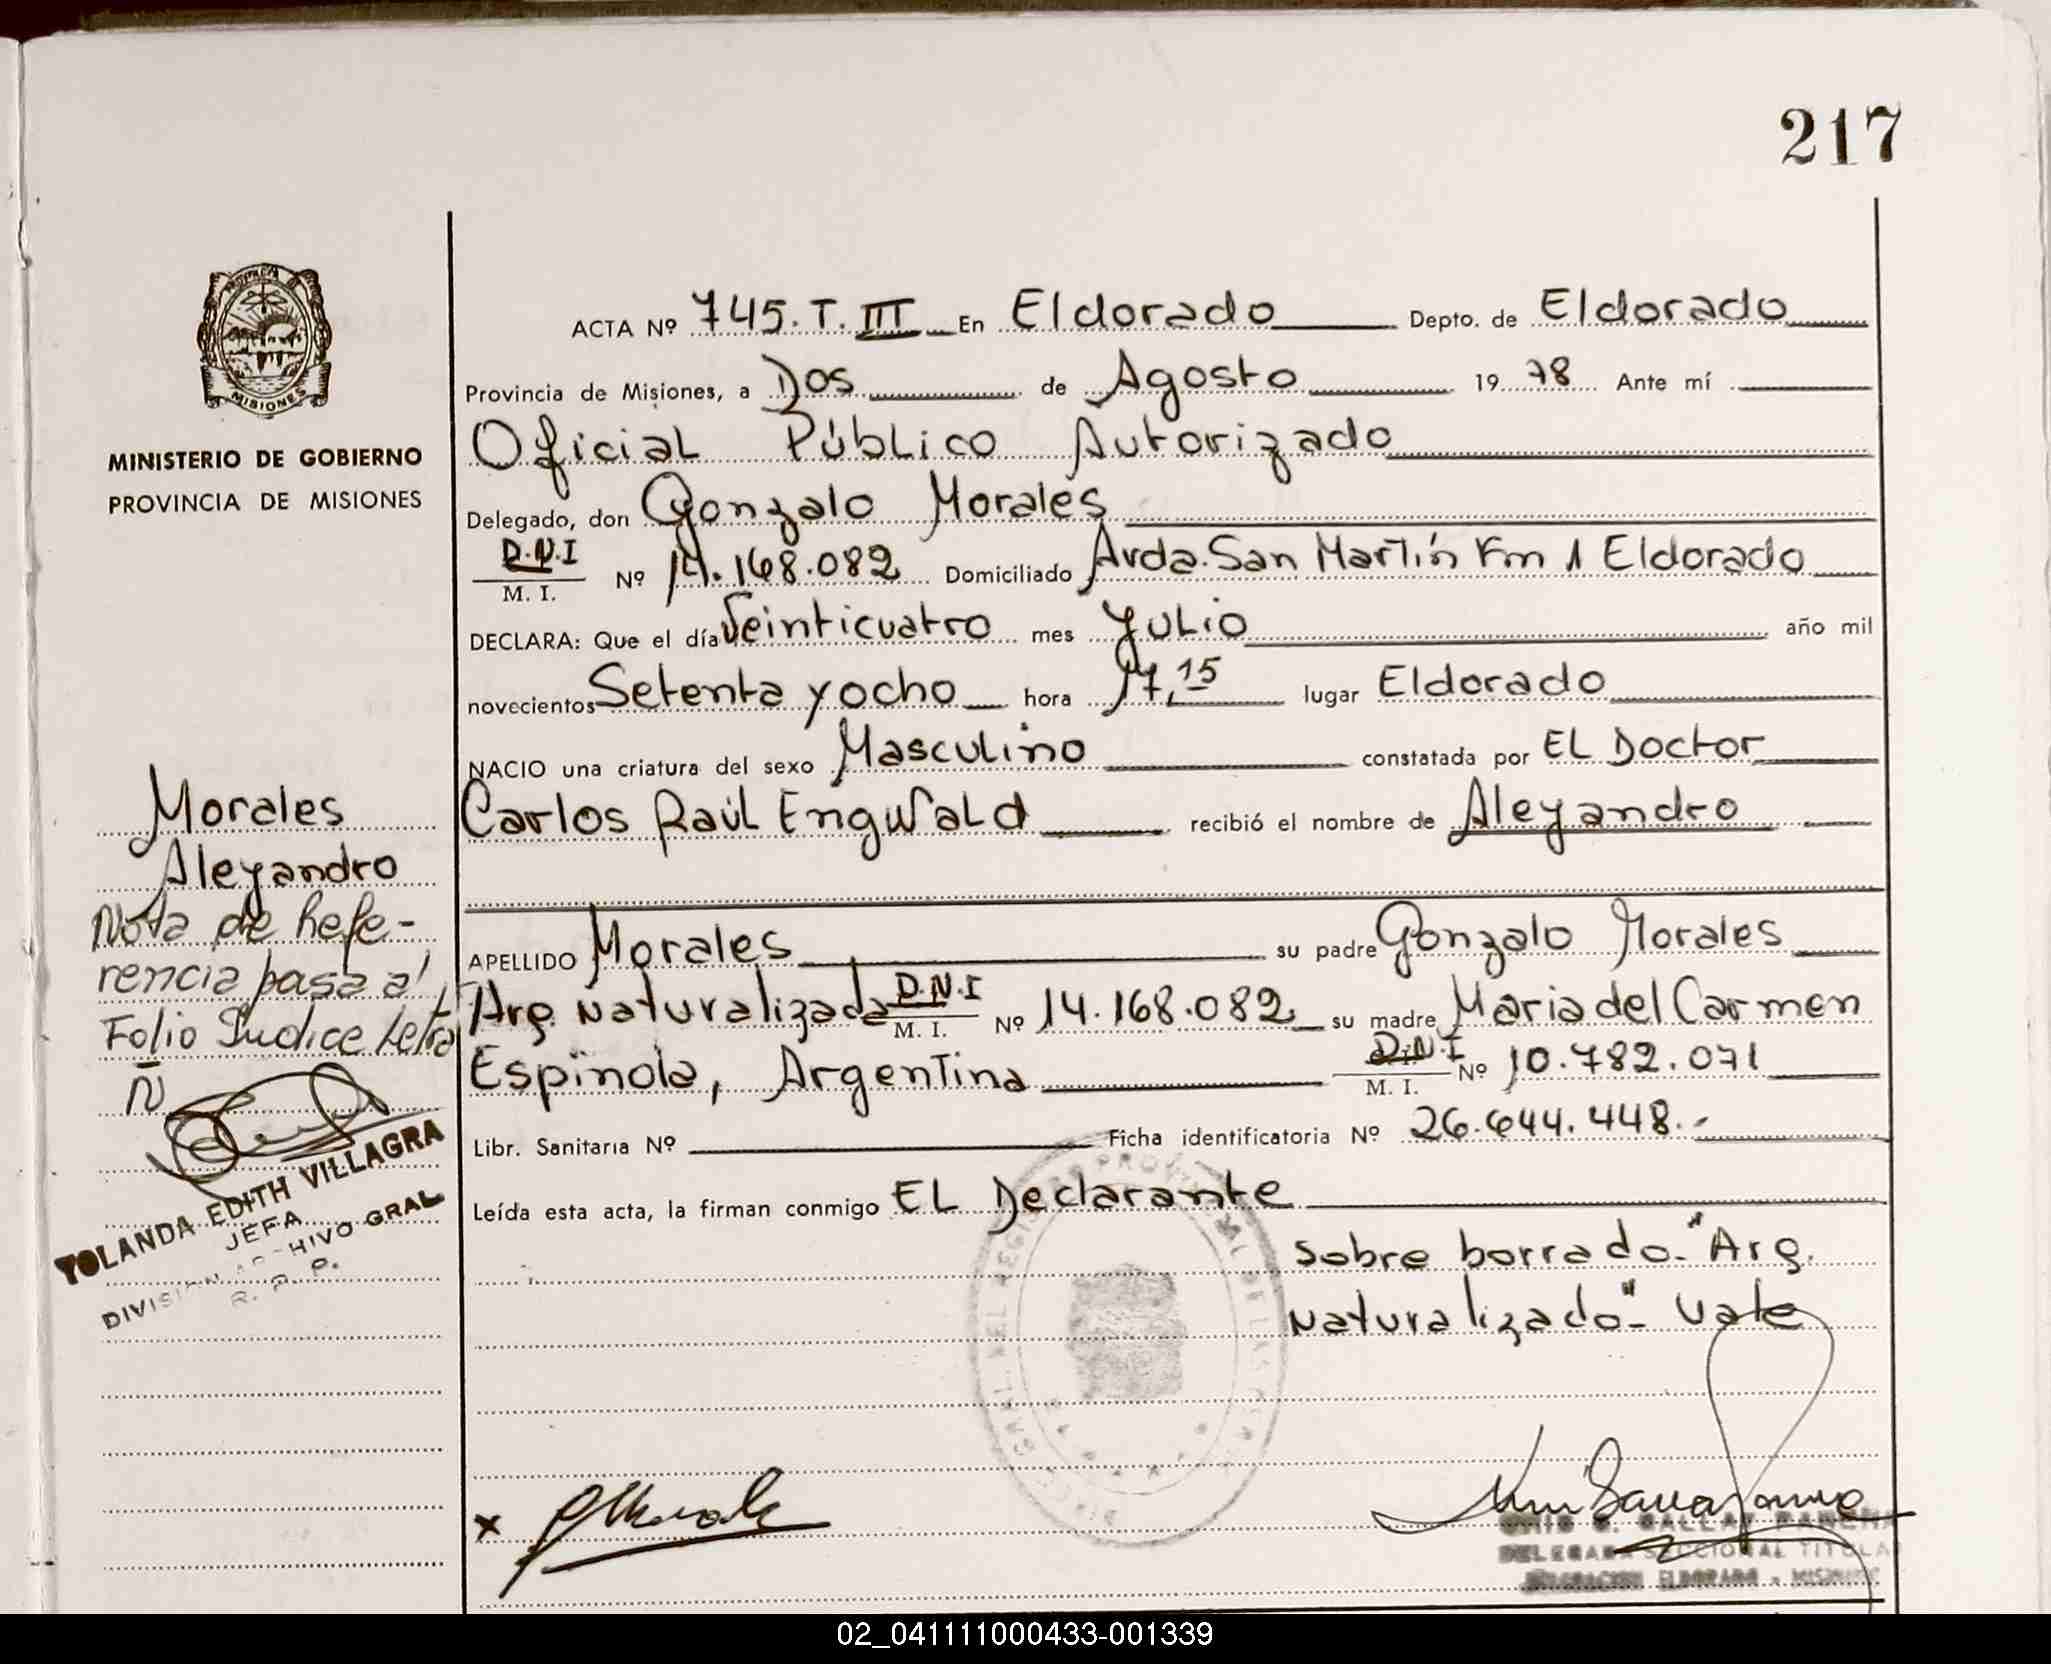 217
ACTA Nº 745. T. III En Eldorado Depto. de Eldorado
Provincia de Misiones, a Dos de Agosto 1978 Ante mí
MINISTERIO DE GOBIERNO
PROVINCIA DE MISIONES
MISIONES
Oficial Público Autorizado
Delegado, don Gonzalo Morales
D.N.I M. I. Nº 14.168.082 Domiciliado Avda. San Martín Km 1 Eldorado
DECLARA: Que el día Veinticuatro mes Julio año mil
novecientos Setenta y ocho hora 17,15 lugar Eldorado
NACIO una criatura del sexo Masculino constatada por EL Doctor
Carlos Raúl Engwald recibió el nombre de Alejandro
APELLIDO Morales su padre Gonzalo Morales
Arg. Naturalizada D.N.I M. I. Nº 14.168.082 su madre Maria del Carmen
Espínola, Argentina D.N.I M. I. Nº 10.782.071
Libr. Sanitaria Nº Ficha identificatoria Nº 26.644.448.-
Leída esta acta, la firman conmigo EL Declarante
Sobre borrado- "Arg.
Naturalizado"- Vale
Morales
Alejandro
Nota de Refe-
rencia pasa al
Folio Indice Letra
Ñ
YOLANDA EDITH VILLAGRA
JEFA
DIVISION ARCHIVO GRAL
R. P. P.
x
DELEGADA SECCIONAL TITULAR
ELDORADO - MISIONES
02_041111000433-001339